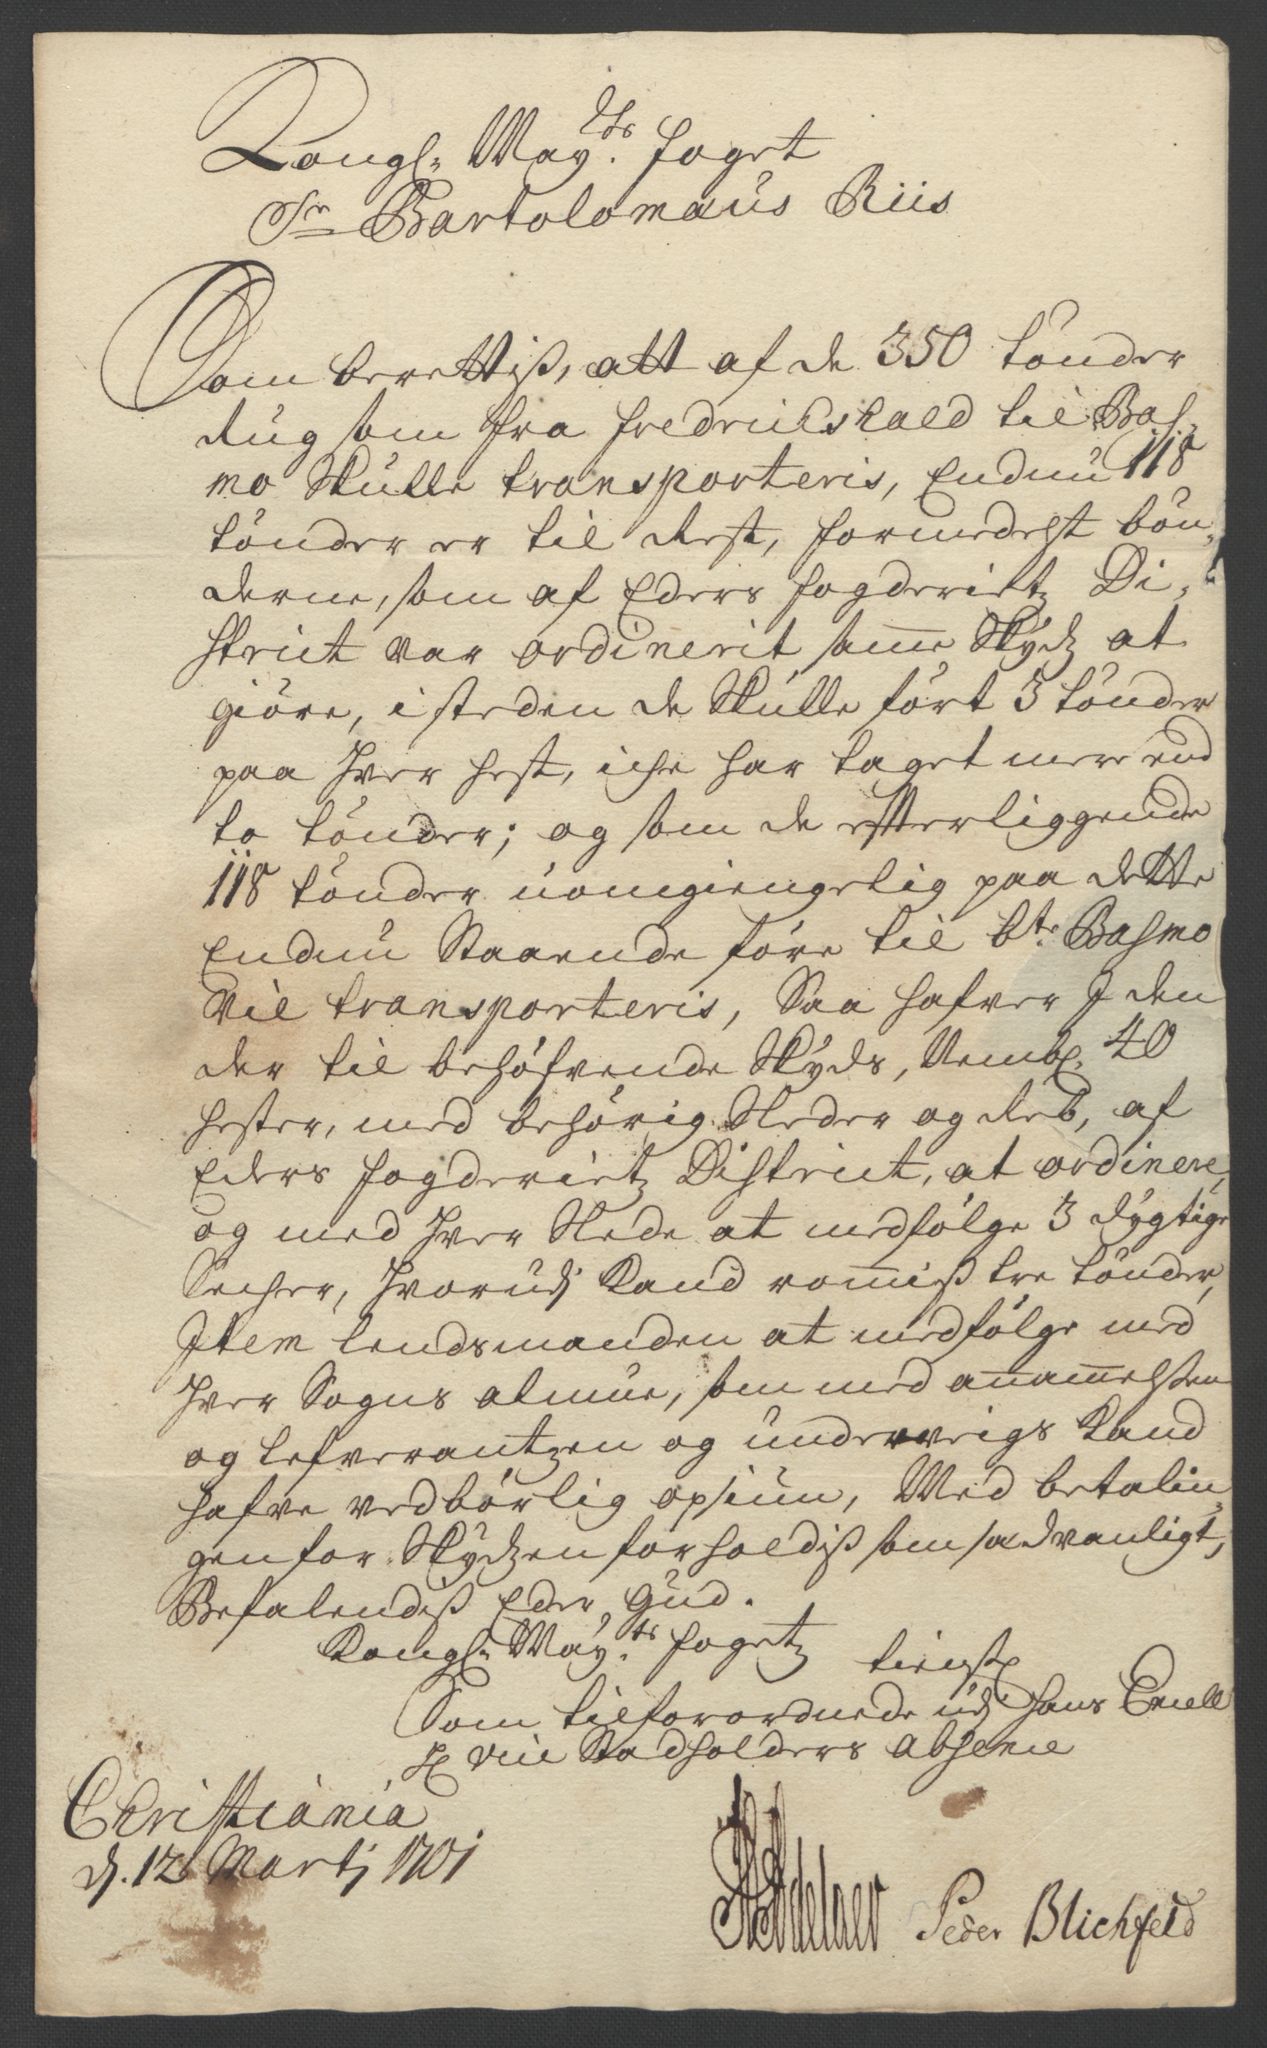 Kongl. May.ts foget
Sr Bartolomæus Riis
Som berettiß, att af de 350 tönder
Rug som fra fredrichshald til Bas-
mo Skulle transporteris, Endnu 118
tönder er til Rest, formedelst bön-
derne, som af Eders fogderietz Di-
strict var ordinerit samme Skydz at
giöre, i steden de Skulle fört 3 tönder
paa hver hest, iche har taget mere end
to tönder; og som de efterliggende
118 tönder uomgiengelig paa dette
Endnu Staaende före til bte Basmo
vil transporteris, Saa hafver I den
der til behöfvende Skyds, Nembl. 40
hester, med behörig Sleder og Reb, af
Eders fogderietz District, at ordinere,
og med hver Slede at medfölge 3 dygtige
Secher, hvorudj kand rommiß tre tönder,
Item lendsmanden at medfölge med
hver Sogns almue, som med annammelsen
og lefverantzen og underveigs kand
hafve vedbörlig opsiun, Med betalin-
gen for Skydzen forholdiß som sædvanligt,
Befalendiß Eder Gud.
Kongl. May.ts fogetz
tienstl
Som tilforordnede udj hans Excell
H Vice Stadholders absence
Christiania
d. 12 Martj 1701
Adelaer Peder Blichfeld